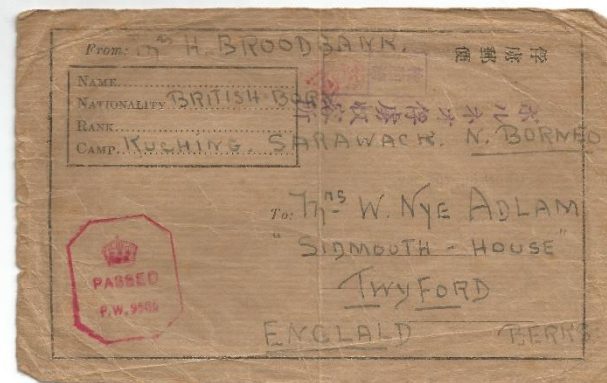 From: Mrs H. BROODBANK.
俘虜郵便
NAME
NATIONALITY BRITISH-BOR
RANK
ボルネオ俘虜収容所
CAMP KUCHING. SARAWACK. N. BORNEO
To: Mrs W. NYE ADLAM
"SIDMOUTH - HOUSE"
TWYFORD
ENGLALD BERKS
PASSED
P.W.